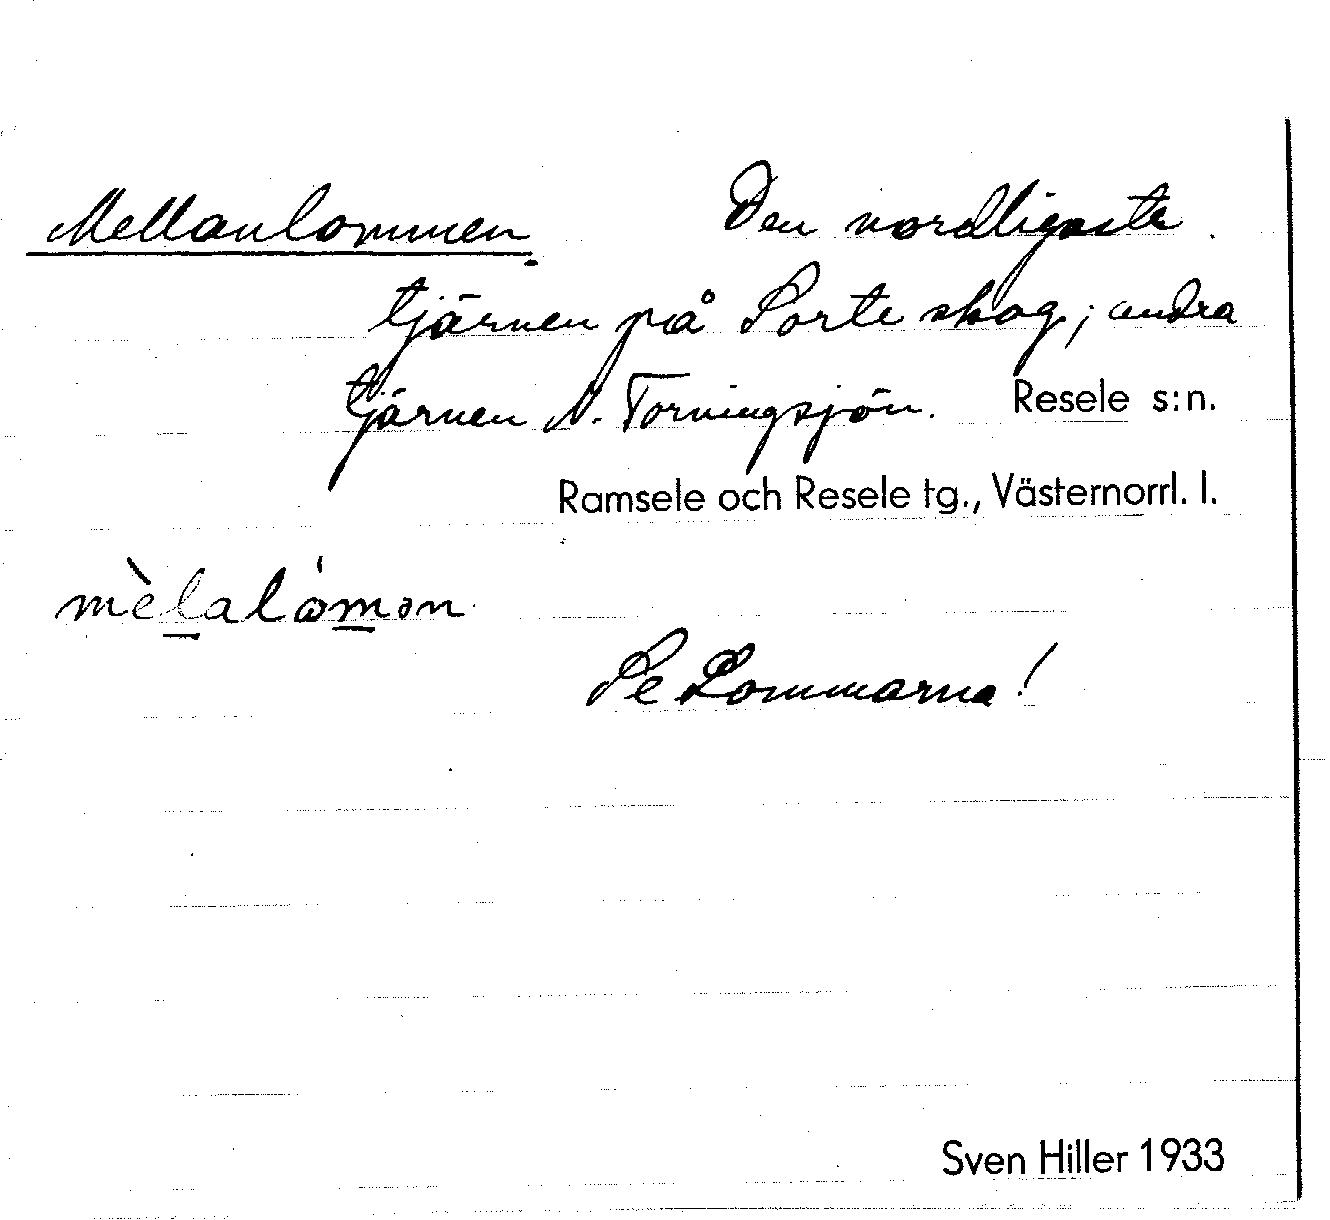 Mellanlommen Den nordligaste
tjärnen på Sorte skog; andra
tjärnen N. Torningsjön. Resele s:n.
Ramsele och Resele tg., Västernorrl. l.
mèlalómən
Se Lommarna!
Sven Hiller 1933